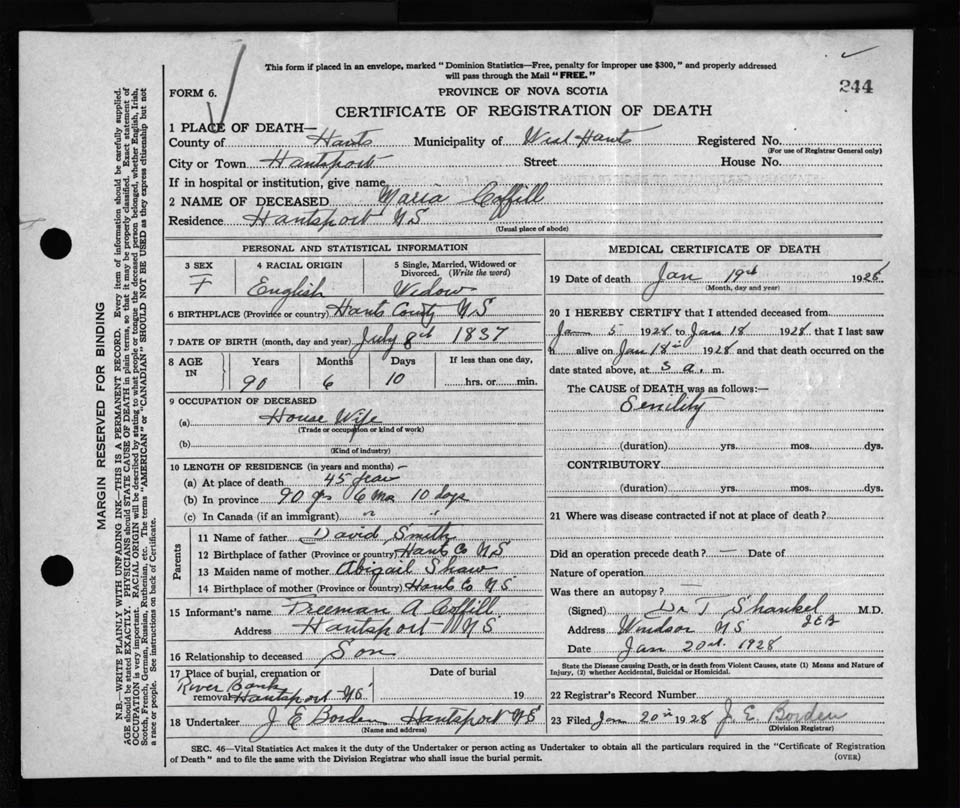 This form if placed in an envelope, marked "Dominion Statistics—Free, penalty for improper use $300," and properly addressed
will pass through the Mail "FREE."
FORM 6.
PROVINCE OF NOVA SCOTIA
244
CERTIFICATE OF REGISTRATION OF DEATH
1 PLACE OF DEATH—
County of Hants Municipality of West Hants Registered No.
(For use of Registrar General only)
City or Town Hantsport Street House No.
If in hospital or institution, give name
2 NAME OF DECEASED Maria Coffill
Residence Hantsport NS
(Usual place of abode)
PERSONAL AND STATISTICAL INFORMATION
3 SEX 4 RACIAL ORIGIN 5 Single, Married, Widowed or
Divorced. (Write the word)
F English Widow
6 BIRTHPLACE (Province or country) Hants County NS
7 DATE OF BIRTH (month, day and year) July 8th 1837
8 AGE IN Years Months Days If less than one day,
90 6 10 hrs. or min.
9 OCCUPATION OF DECEASED
(a) House Wife
(Trade or occupation or kind of work)
(b)
(Kind of industry)
10 LENGTH OF RESIDENCE (in years and months)—
(a) At place of death 45 year
(b) In province 90 yrs 6 Mo 10 days
(c) In Canada (if an immigrant) " "
Parents
11 Name of father David Smith
12 Birthplace of father (Province or country) Hants Co NS
13 Maiden name of mother Abigail Shaw
14 Birthplace of mother (Province or country) Hants Co NS
15 Informant's name Freeman A Coffill
Address Hantsport NS
16 Relationship to deceased Son
17 Place of burial, cremation or Date of burial
River Bank
removal Hantsport NS 19
18 Undertaker J E Borden Hantsport NS
(Name and address)
MEDICAL CERTIFICATE OF DEATH
19 Date of death Jan 19th 1928
(Month, day and year)
20 I HEREBY CERTIFY that I attended deceased from
Jan 5 1928 to Jan 18 1928 that I last saw
h alive on Jan 18th 1928 and that death occurred on the
date stated above, at 5 a. m.
The CAUSE of DEATH was as follows:—
Senility
(duration) yrs. mos. dys.
CONTRIBUTORY
(duration) yrs. mos. dys.
21 Where was disease contracted if not at place of death?
Did an operation precede death? — Date of
Nature of operation
Was there an autopsy? —
(Signed) Dr T Shankel M.D.
Address Windsor NS JEB
Date Jan 20th 1928
State the Disease causing Death, or in death from Violent Causes, state (1) Means and Nature of
Injury, (2) whether Accidental, Suicidal or Homicidal.
22 Registrar's Record Number
23 Filed Jan 20th 1928 J. E. Borden
(Division Registrar)
SEC. 46—Vital Statistics Act makes it the duty of the Undertaker or person acting as Undertaker to obtain all the particulars required in the "Certificate of Registration
of Death" and to file the same with the Division Registrar who shall issue the burial permit.
(OVER)
MARGIN RESERVED FOR BINDING
N.B.—WRITE PLAINLY, WITH UNFADING INK—THIS IS A PERMANENT RECORD. Every item of information should be carefully supplied.
AGE should be stated EXACTLY. PHYSICIANS should STATE CAUSE OF DEATH in plain terms, so that it may be properly classified. Exact statement of
OCCUPATION is very important. RACIAL ORIGIN will be described by stating to what people or tongue the deceased person belonged, whether English, Irish,
Scotch, French, German, Russian, Ruthenian, etc. The terms "AMERICAN" or "CANADIAN" SHOULD NOT BE USED as they express citizenship but not
a race or people. See instructions on back of Certificate.